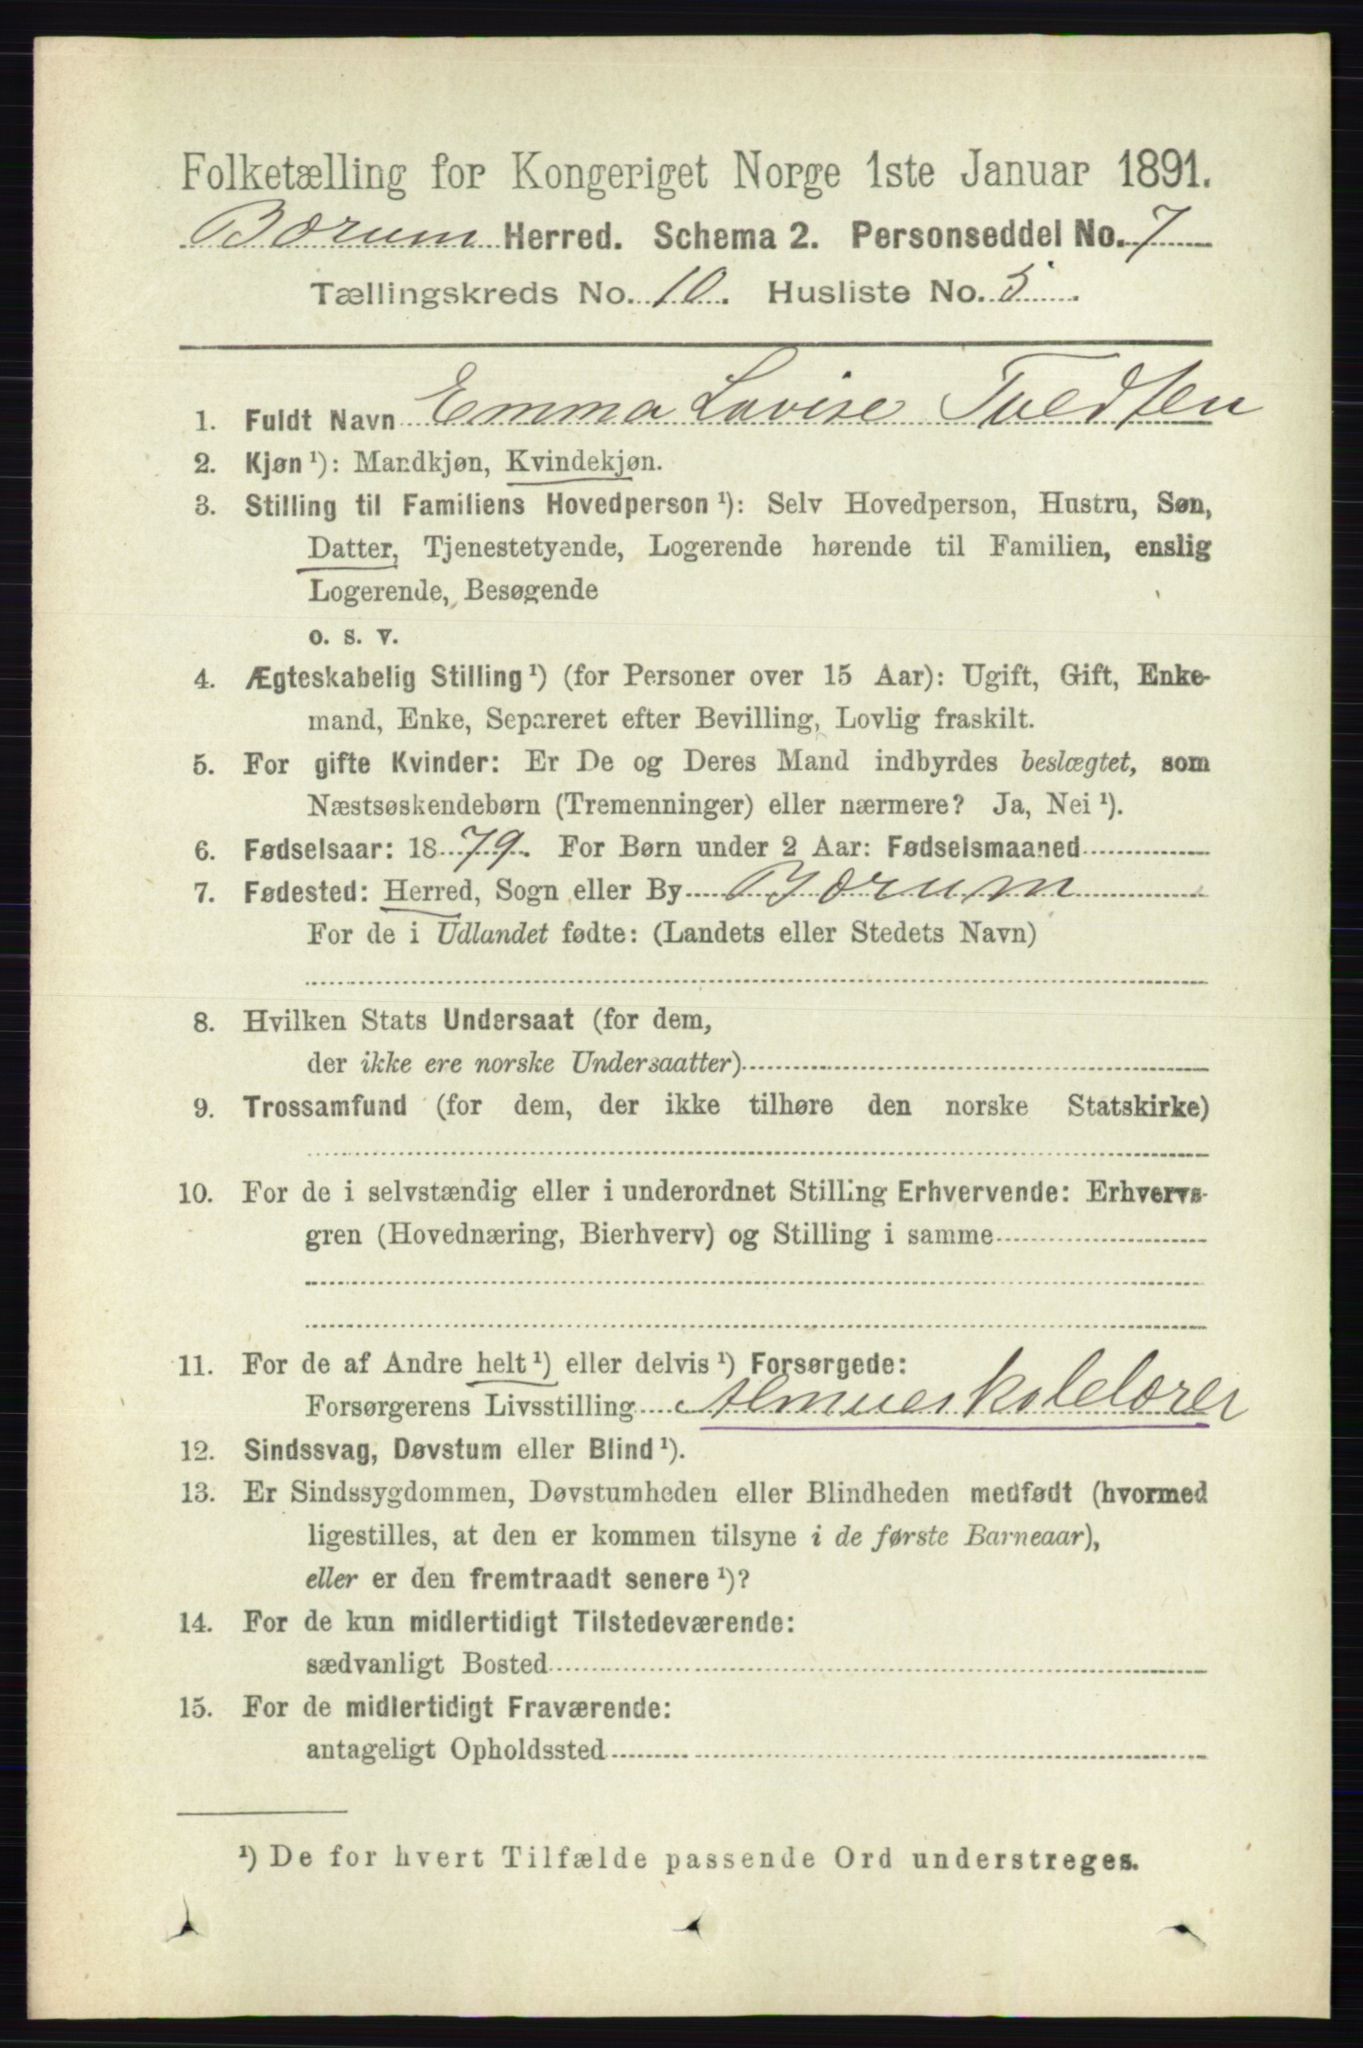 Folketælling for Kongeriget Norge 1ste Januar 1891.
Bærum Herred. Schema 2. Personseddel No. 7
Tællingskreds No. 10. Husliste No. 5.
1. Fuldt Navn Emma Lovise Tvedten
2. Kjøn ¹): Mandkjøn, Kvindekjøn.
3. Stilling til Familiens Hovedperson ¹): Selv Hovedperson, Hustru, Søn,
Datter, Tjenestetyende, Logerende hørende til Familien, enslig
Logerende, Besøgende
o. s. v.
4. Ægteskabelig Stilling ¹) (for Personer over 15 Aar): Ugift, Gift, Enke-
mand, Enke, Separeret efter Bevilling, Lovlig fraskilt.
5. For gifte Kvinder: Er De og Deres Mand indbyrdes beslægtet, som
Næstsøskendebørn (Tremenninger) eller nærmere? Ja, Nei ¹).
6. Fødselsaar: 1879. For Børn under 2 Aar: Fødselsmaaned
7. Fødested: Herred, Sogn eller By Bærum
For de i Udlandet fødte: (Landets eller Stedets Navn)
8. Hvilken Stats Undersaat (for dem,
der ikke ere norske Undersaatter)
9. Trossamfund (for dem, der ikke tilhøre den norske Statskirke)
10. For de i selvstændig eller i underordnet Stilling Erhvervende: Erhvervs-
gren (Hovednæring, Bierhverv) og Stilling i samme
11. For de af Andre helt ¹) eller delvis ¹) Forsørgede:
Forsørgerens Livsstilling Almueskolelærer
12. Sindssvag, Døvstum eller Blind ¹).
13. Er Sindssygdommen, Døvstumheden eller Blindheden medfødt (hvormed
ligestilles, at den er kommen tilsyne i de første Barneaar),
eller er den fremtraadt senere ¹)?
14. For de kun midlertidigt Tilstedeværende:
sædvanligt Bosted
15. For de midlertidigt Fraværende:
antageligt Opholdssted
¹) De for hvert Tilfælde passende Ord understreges.